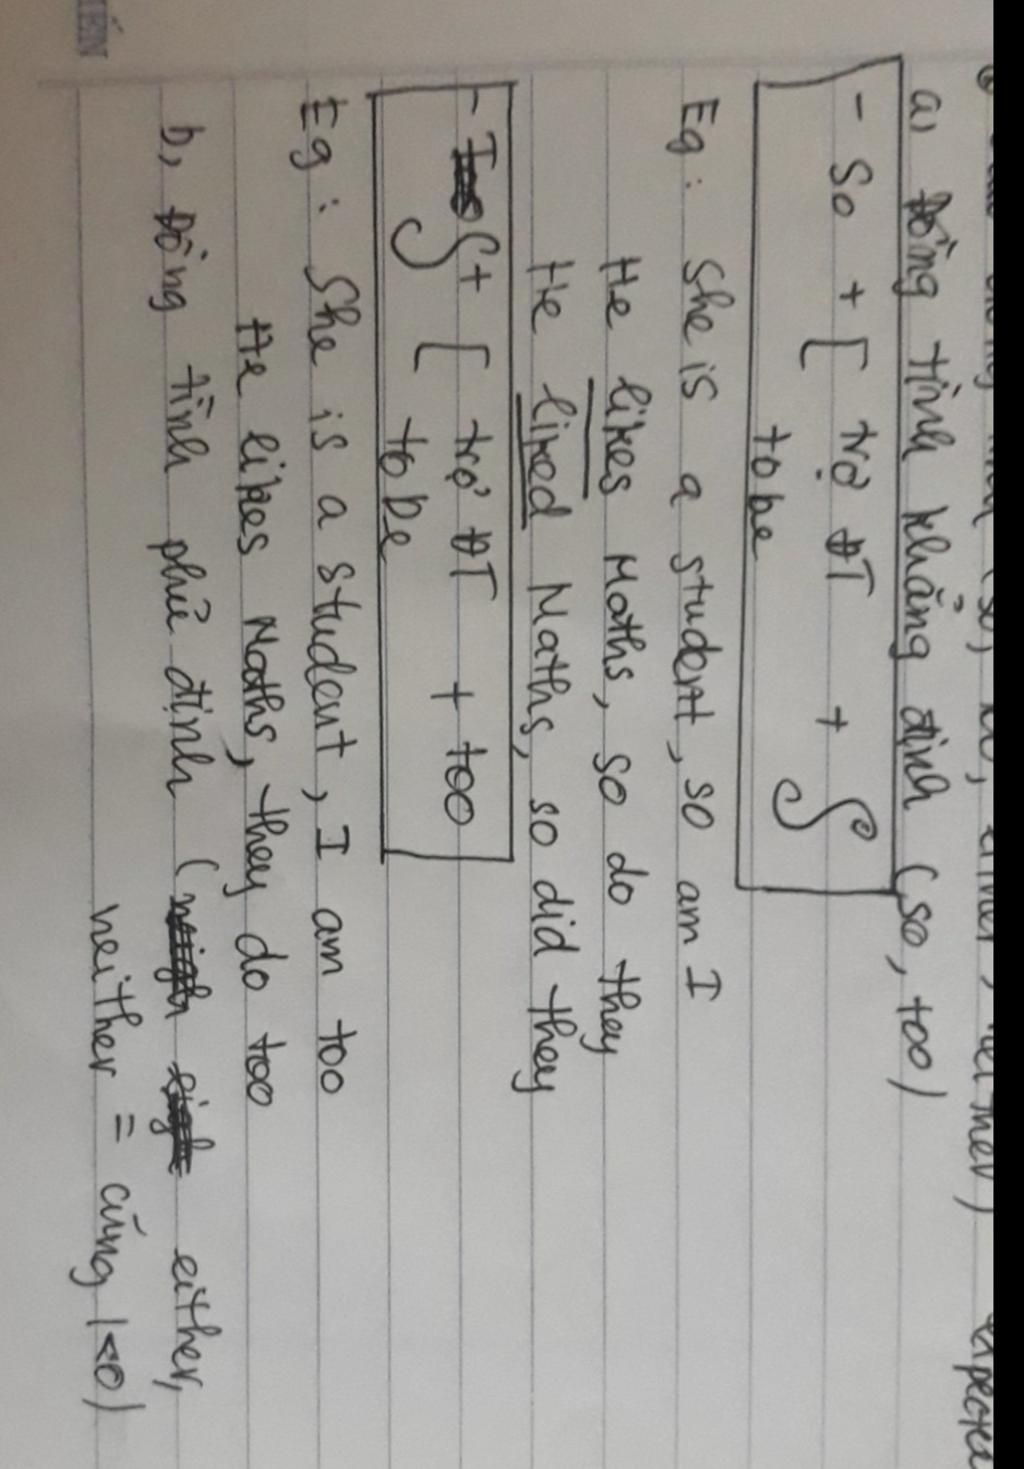 (so, too, either, neither)
a, Đồng tình khẳng định (so, too)
- So + [ trợ ĐT + S
to be
Eg: She is a student, so am I
He likes Maths, so do they
He liked Maths, so did they
- S + [ trợ ĐT + too
to be
Eg: She is a student, I am too
He likes Maths, they do too
b, Đồng tình phủ định (either,
neither = cũng ko)
IẾN